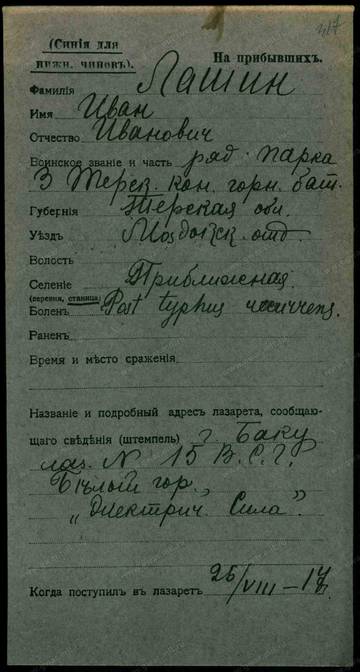 417
(Синія для
нижн. чиновъ).
На прибывшихъ.
Фамилія Лашин
Имя Иван
Отчество Иванович
Воинское званіе и часть ряд. парка
3 Терск. кон. горн. бат.
Губернія Терская обл.
Уѣздъ Моздокск. отд.
Волость
Селеніе Приближная
(деревня, станица)
Боленъ Post typhus
Раненъ
Время и мѣсто сраженія
Названіе и подробный адресъ лазарета, сообщаю-
щаго свѣдѣнія (штемпель) г. Баку
лаз. N 15 В.С.Г.
Бѣлый гор.
„Электрич. Сила".
Когда поступилъ въ лазаретъ 25/VIII—17